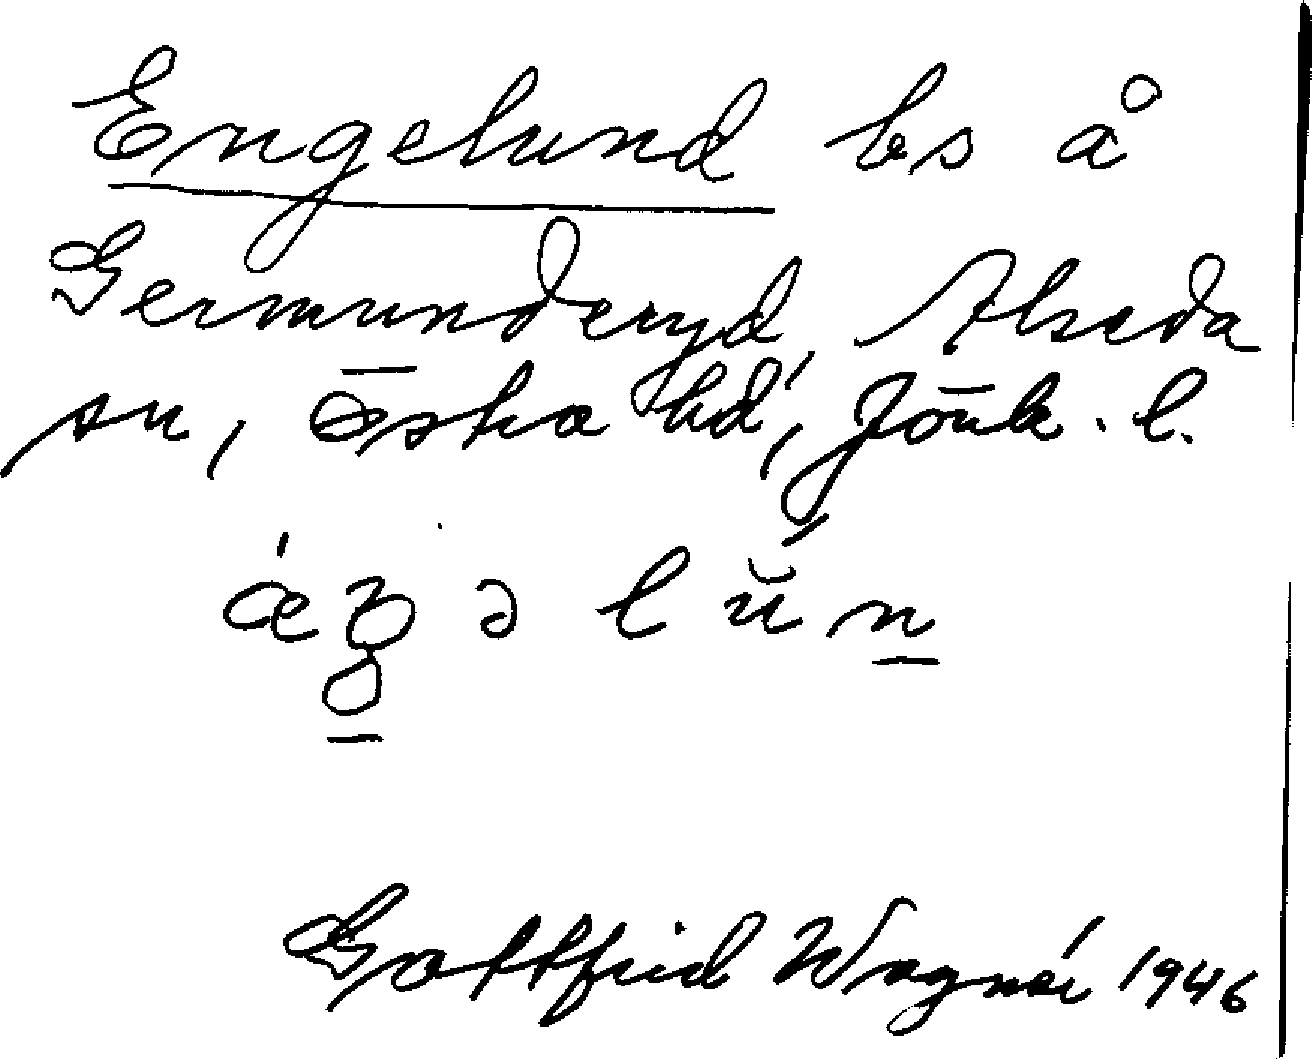 Engelund bs å
Germunderyd, Alseda
sn, Östra hd, Jönk. l.
Gottfrid Wagnér 1946